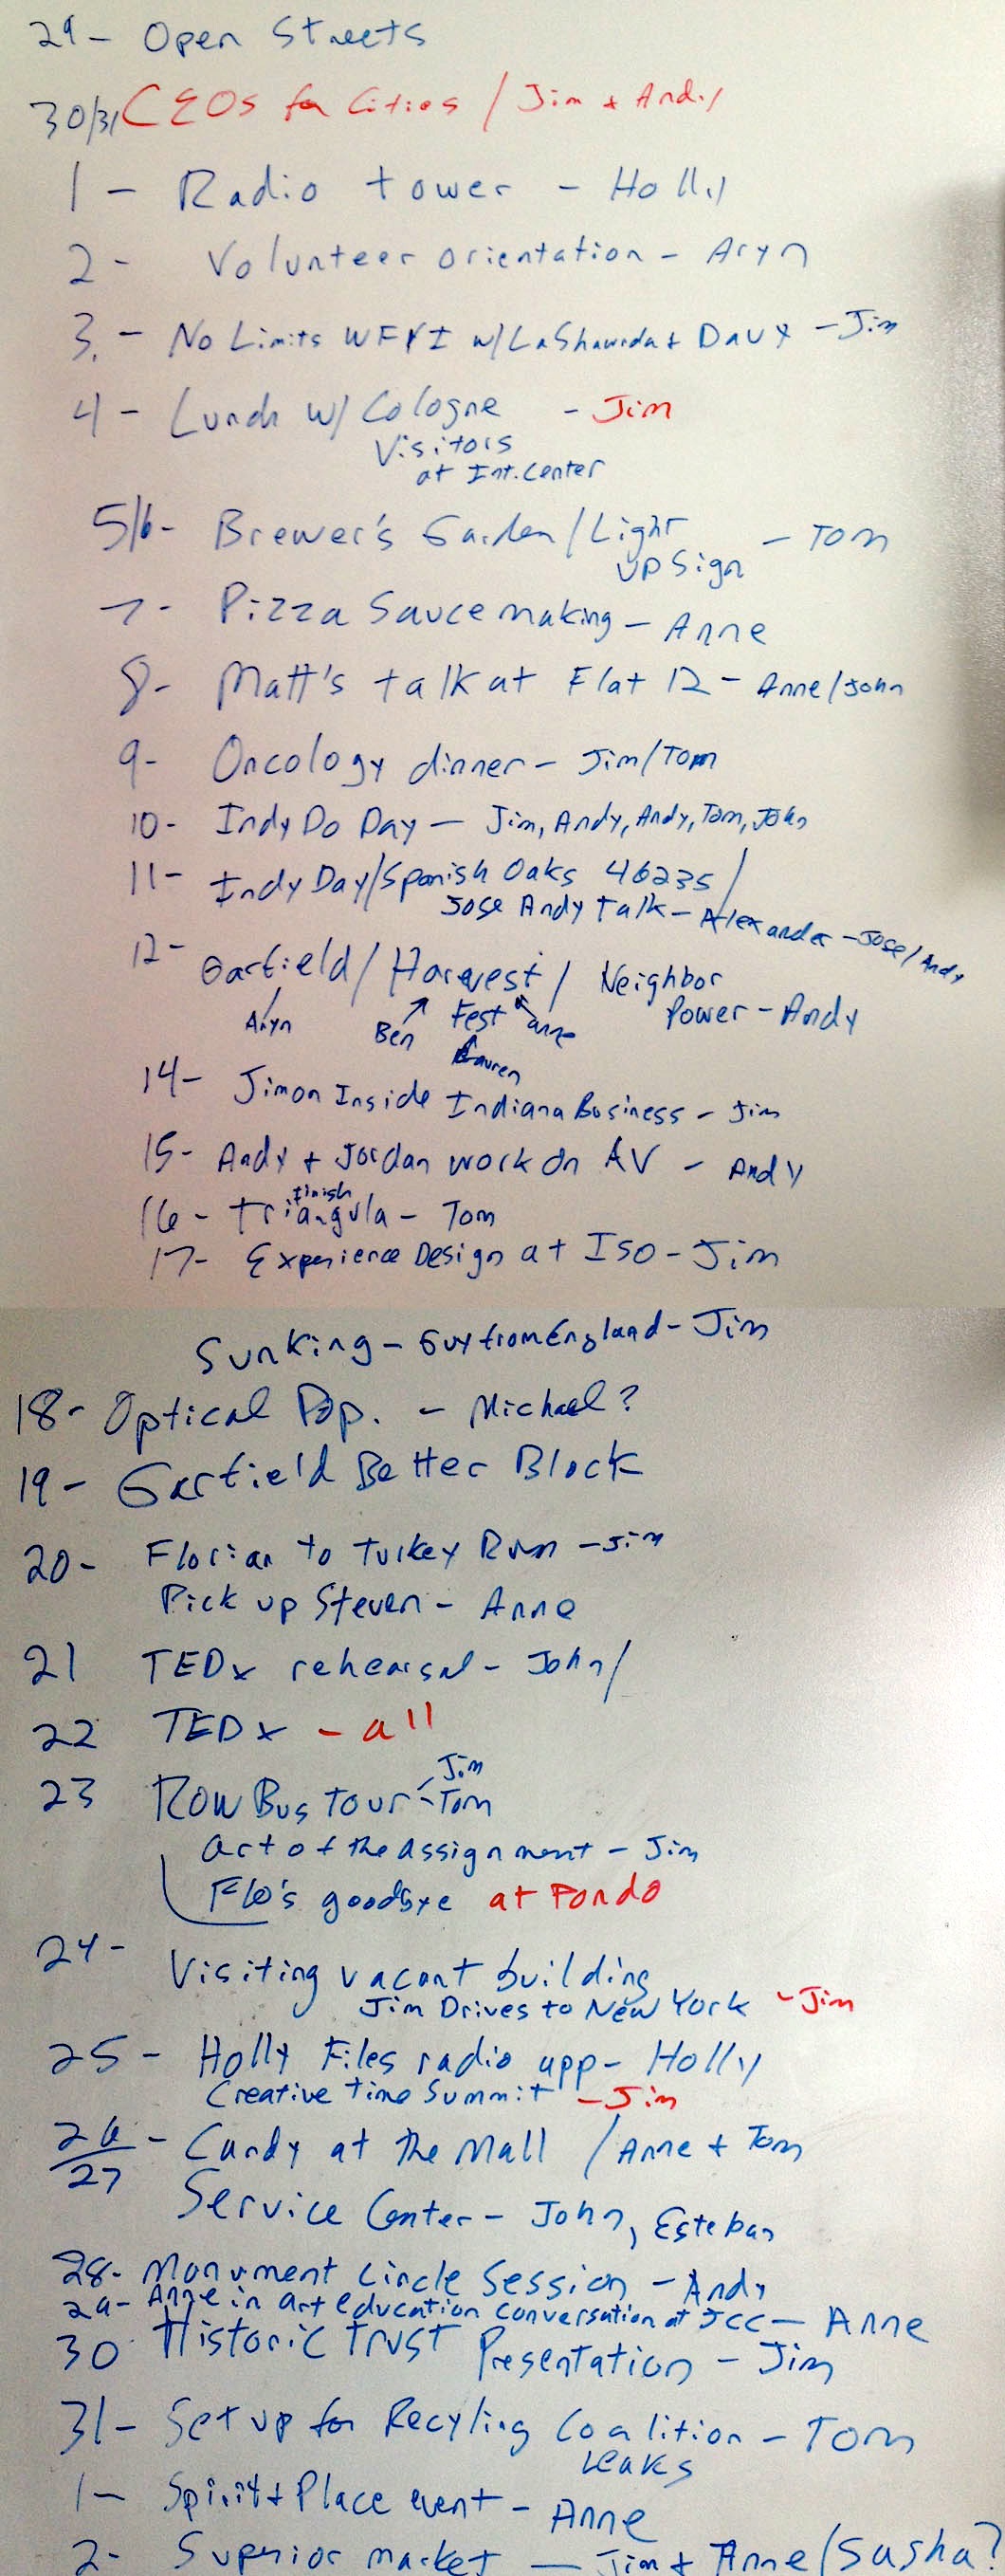 29 - Open Streets
30/31 CEOs for Cities / Jim + Andy
1 - Radio tower - Holly
2 - Volunteer orientation - Aryn
3. - No Limits WFYI w/ LaShawnda + Dauy - Jim
4 - Lunch w/ Cologne - Jim
Visitors
at Int. Center
5/6 - Brewer's Garden / Light - Tom
up Sign
7 - Pizza Sauce making - Anne
8 - Matt's talk at Flat 12 - Anne/John
9 - Oncology dinner - Jim/Tom
10 - Indy Do Day - Jim, Andy, Andy, Tom, John
11 - Indy Day/Spanish Oaks 46235 /
Jose Andy Talk - Alexander - Jose/Andy
12 - Garfield / Harvest / Neighbor
Aryn Ben Fest anne Power - Andy
Lauren
14 - Jim on Inside Indiana Business - Jim
15 - Andy + Jordan work on AV - Andy
finish
16 - triangula - Tom
17 - Experience Design at ISO - Jim
Sunking - Guy from England - Jim
18 - Optical Pop. - Michael?
19 - Garfield Better Block
20 - Florian to Turkey Run - Jim
Pick up Steven - Anne
21 TEDx rehearsal - John/
22 TEDx - all
Jim
23 ROW Bus tour - Tom
Art of the Assignment - Jim
Flo's goodbye at Pondo
24 - Visiting vacant building
Jim Drives to New York - Jim
25 - Holly Files radio app - Holly
Creative time Summit - Jim
26/27 - Candy at the Mall / Anne + Tom
Service Center - John, Esteban
28 - Monument Circle Session - Andy
29 - Anne in art education conversation at JCC - Anne
30 Historic Trust Presentation - Jim
31 - Set up for Recyling Coalition - Tom
Leaks
1 - Spirit + Place event - Anne
2 - Superior market - Jim + Anne/Sasha?